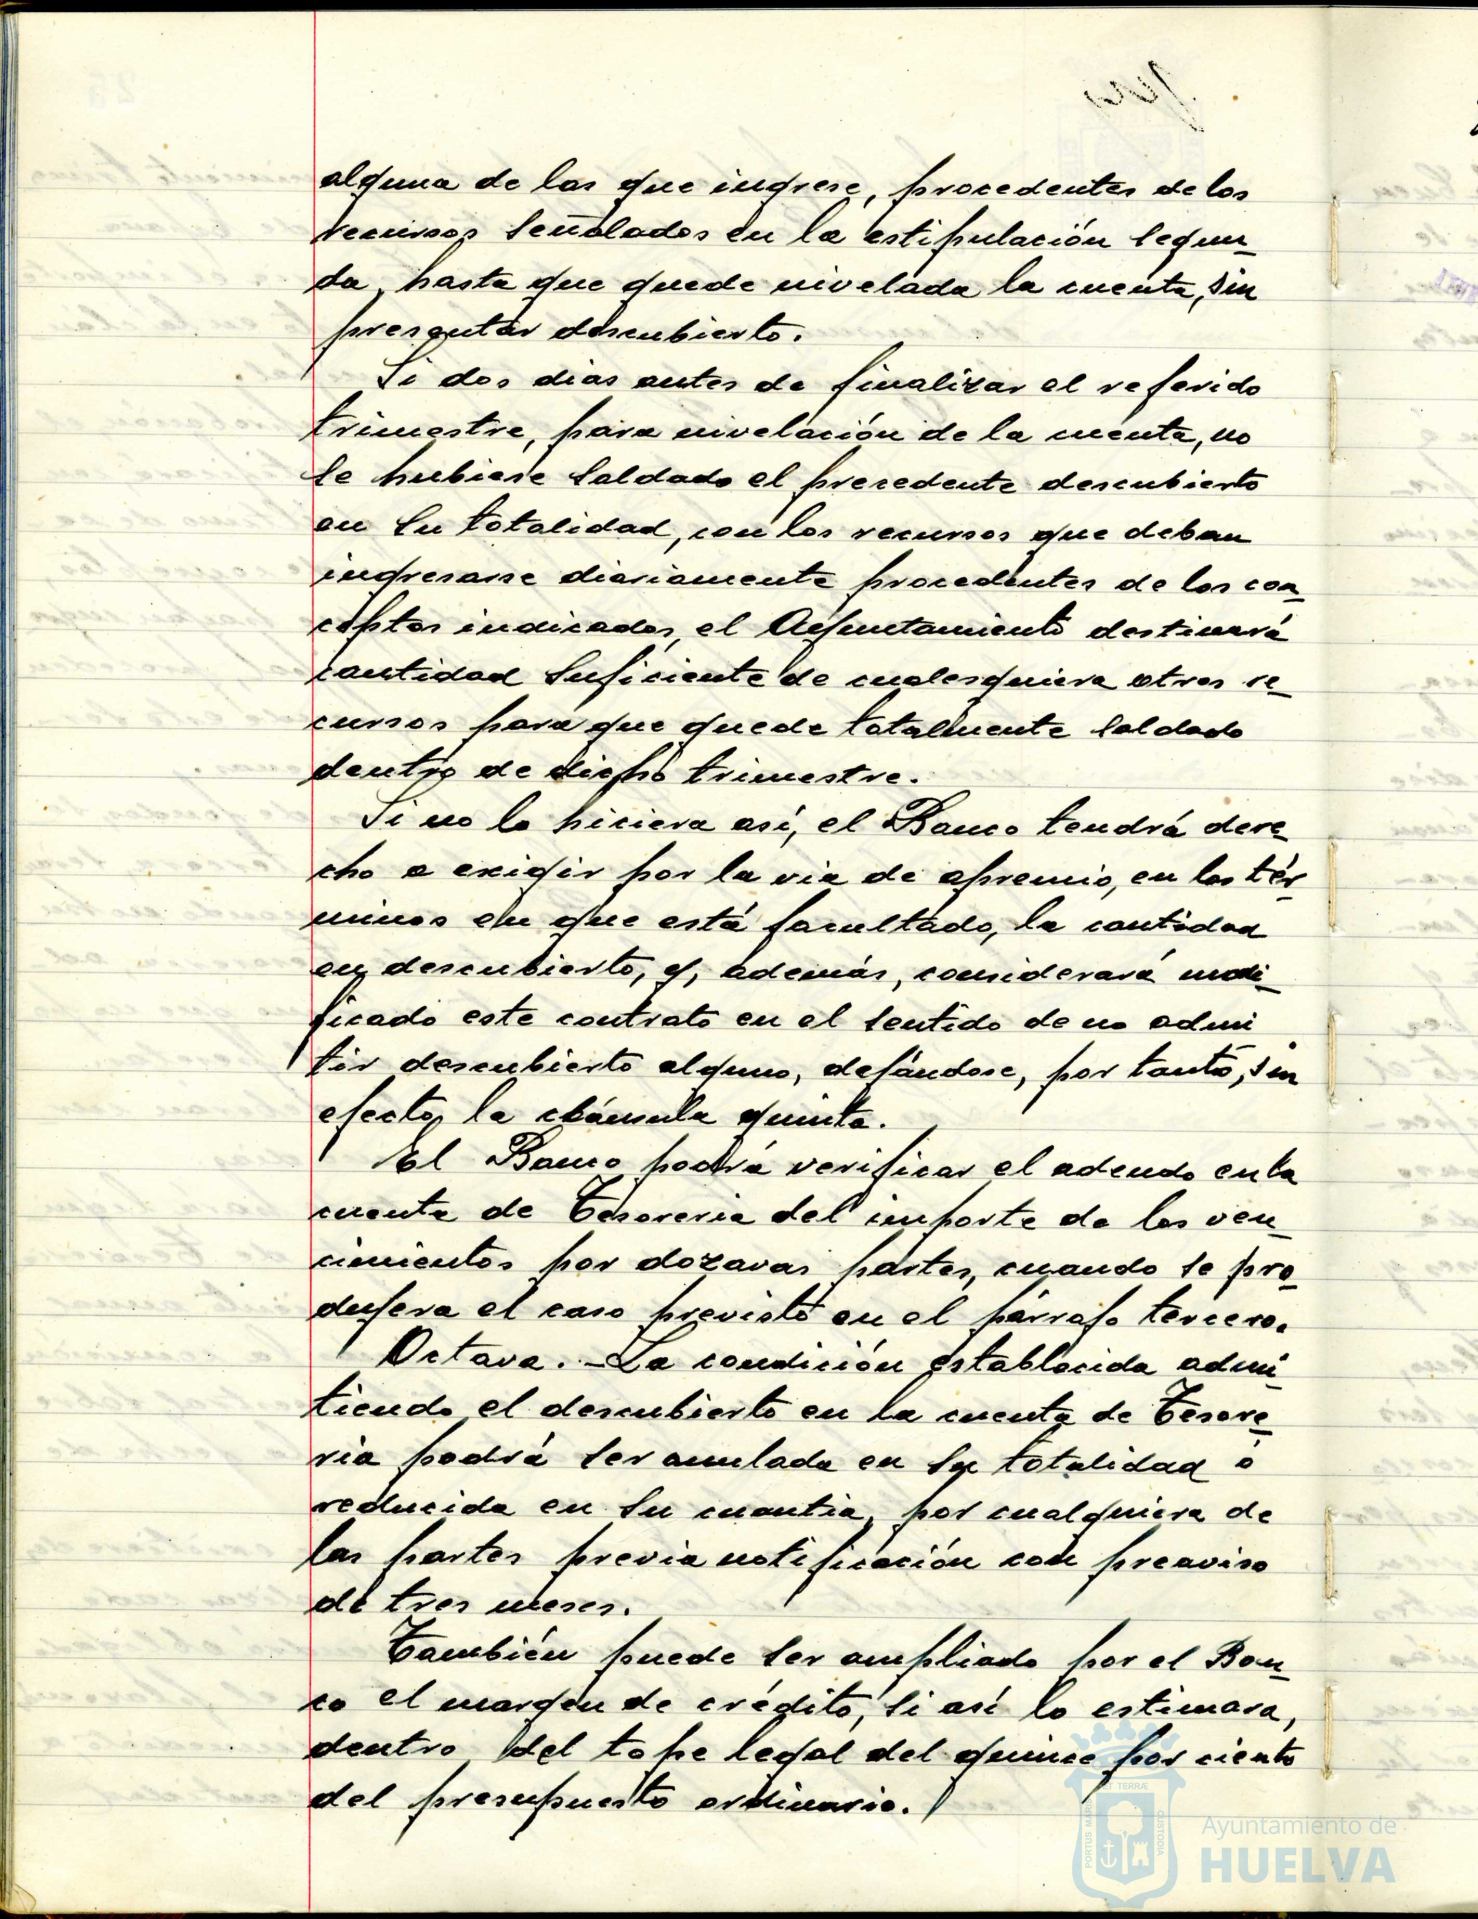 alguna de las que ingrese, procedentes de los
recursos señalados en la estipulación segun-
da, hasta que quede nivelada la cuenta, sin
presentar descubierto.
Si dos dias antes de finalizar el referido
trimestre, para nivelación de la cuenta, no
se hubiese saldado el precedente descubierto
en su totalidad, con los recursos que deban
ingresarse diariamente procedentes de los con-
ceptos indicados, el Ayuntamiento destinará
cantidad suficiente de cualesquiera otros re-
cursos para que quede totalmente saldado
dentro de dicho trimestre.
Si no lo hiciera así, el Banco tendrá dere-
cho a exigir por la via de apremio, en los tér-
minos en que está facultado, la cantidad
en descubierto, y, además, considerará modi-
ficado este contrato en el sentido de no admi
tir descubierto alguno, dejándose, por tanto, sin
efecto la cláusula quinta.
El Banco podrá verificar el adeudo en la
cuenta de Tesoreria del importe de los ven-
cimientos por dozavas partes, cuando se pro-
dujera el caso previsto en el párrafo tercero.
Octava. - La condición establecida admi-
tiendo el descubierto en la cuenta de Tesore-
ria podrá ser anulada en su totalidad ó
reducida en su cuantia, por cualquiera de
las partes previa notificación con preaviso
de tres meses.
También puede ser ampliado por el Ban-
co el margen de crédito, si así lo estimara,
dentro del tope legal del quince por ciento
del presupuesto ordinario.
ET TERRÆ
PORTUS MARIS
CUSTODIA
Ayuntamiento de
HUELVA